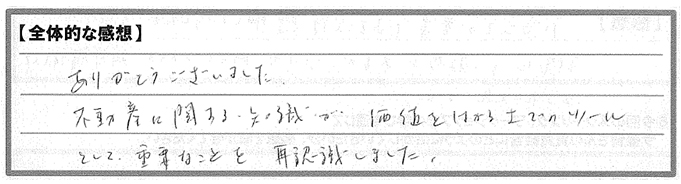 【全体的な感想】
ありがとうございました。
不動産に関する知識が価値をはかる上でのツール
として、重要なことを再認識しました。